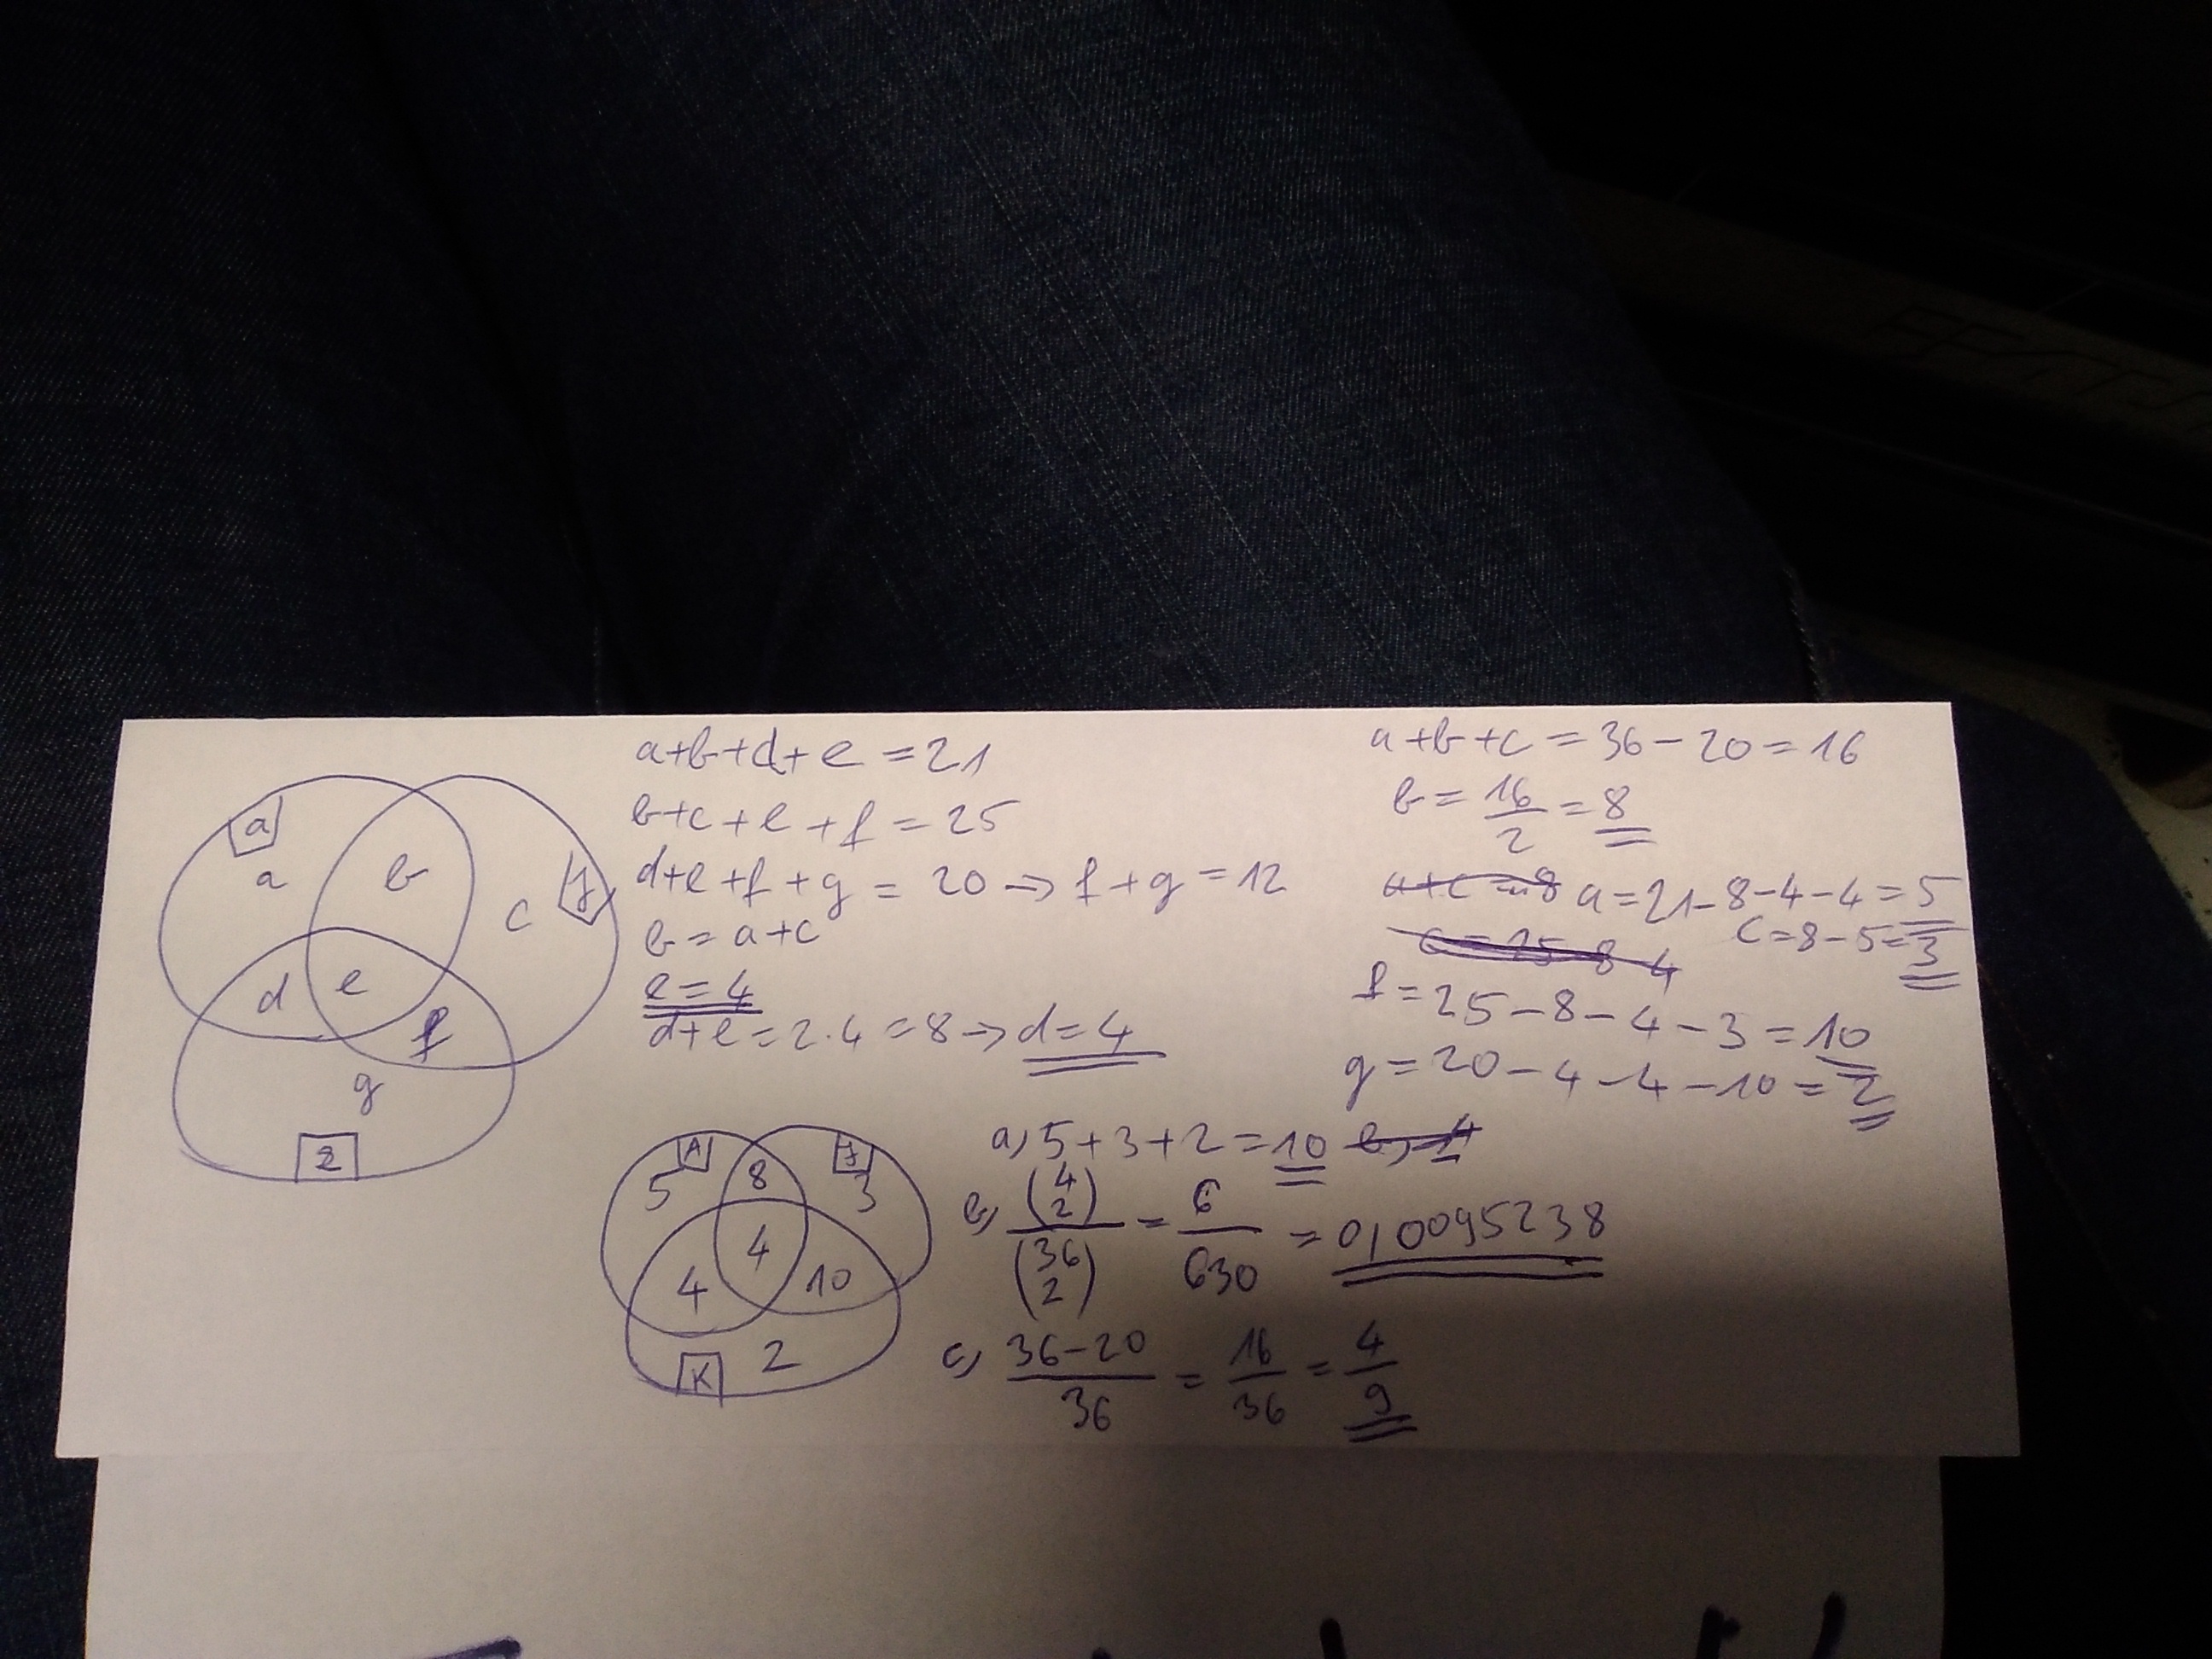 a
a
b
c
J
d
e
f
g
2
a+b+d+e=21
b+c+e+f=25
d+e+f+g=20→f+g=12
b=a+c
e=4
d+e=2·4=8→d=4
a+b+c=36-20=16
b=16/2=8
a+c=8 a=21-8-4-4=5
c=25-8-4 c=8-5=3
f=25-8-4-3=10
g=20-4-4-10=2
A
J
5
8
3
4
4
10
2
K
a, 5+3+2=10 b, 4
b, (4 2)/(36 2)=6/630=0,0095238
c, 36-20/36=16/36=4/9